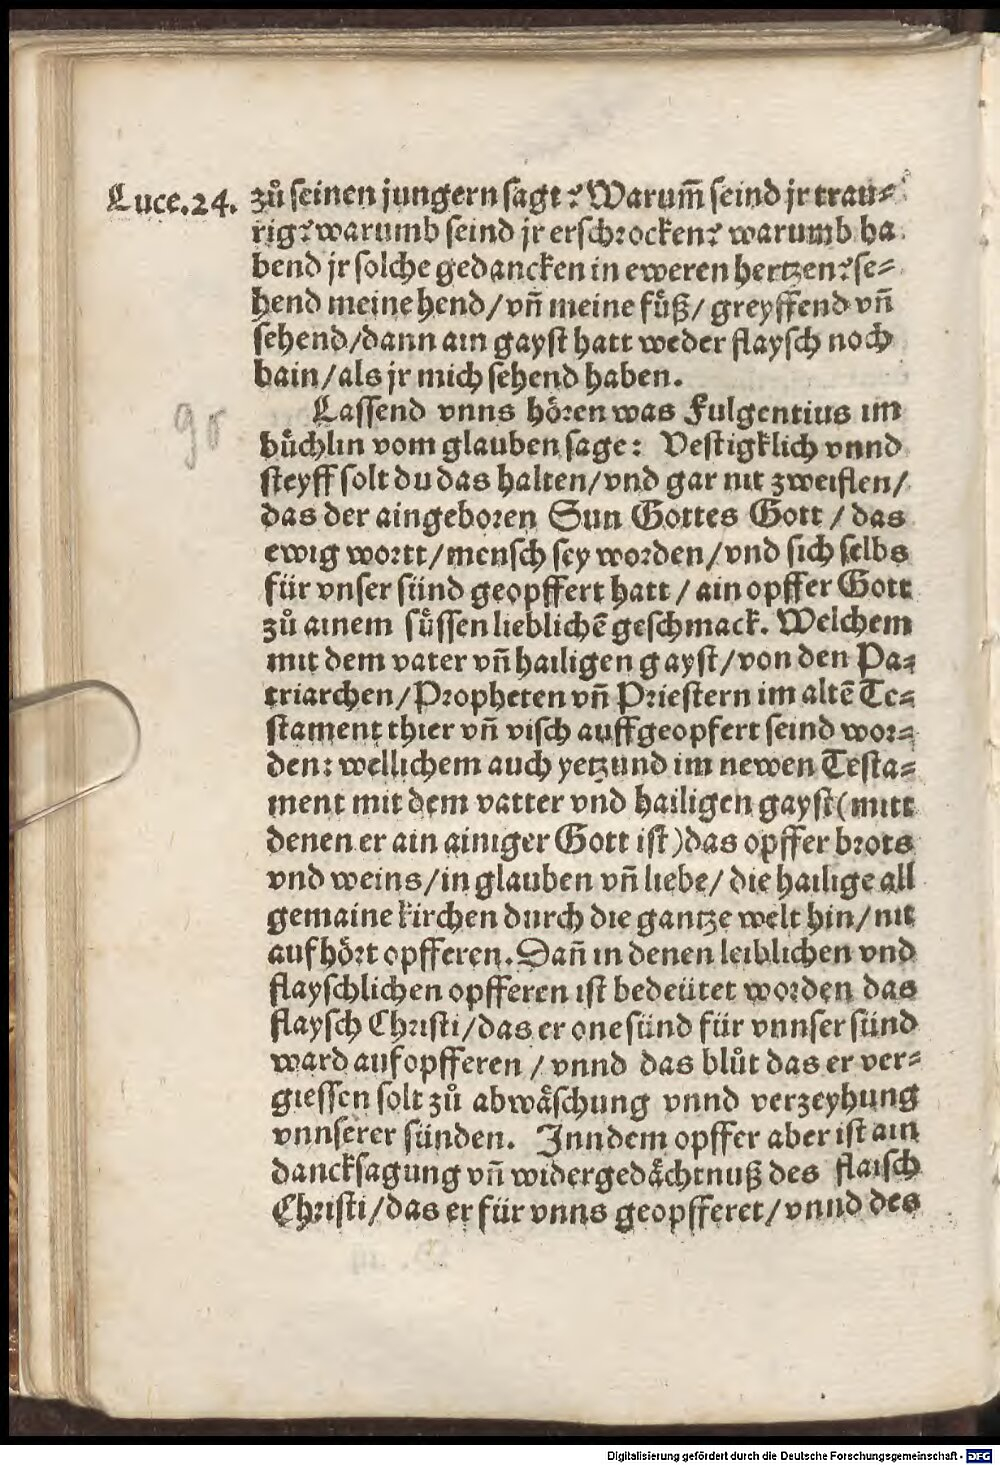 Luce.24. zů seinen jungern sagt? Warum̃ seind jr trau⸗
rig? warumb seind jr erschrocken? warumb ha
bend jr solche gedancken in eweren hertzen? se⸗
hend meine hend/ vñ meine fůͤß/ greyffend vñ
sehend/dann ain gayst hatt weder flaysch noch
bain/als jr mich sehend haben.
Lassend vnns hoͤren was Fulgentius im
buͤchlin vom glauben sage: Vestigklich vnnd
steyff solt du das halten/vnd gar nit zweiflen/
das der aingeboren Sun Gottes Gott / das
ewig wortt/mensch sey worden/vnd sich selbs
für vnser sünd geopffert hatt / ain opffer Gott
zů ainem suͤssen lieblichẽ geschmack. Welchem
mit dem vater vñ hailigen gayst/von den Pa⸗
triarchen/Propheten vñ Priestern im altẽ Te⸗
stament thier vñ visch auffgeopfert seind wor⸗
den: wellichem auch yetzund im newen Testa⸗
ment mit dem vatter vnd hailigen gayst(mitt
denen er ain ainiger Gott ist)das opffer brots
vnd weins/in glauben vñ liebe/ die hailige all
gemaine kirchen durch die gantze welt hin/nit
aufhoͤrt opfferen. Dañ in denen leiblichen vnd
flayschlichen opfferen ist bedeütet worden das
flaysch Christi/das er one sünd für vnnser sünd
ward aufopfferen / vnnd das blůt das er ver⸗
giessen solt zů abwaͤschung vnnd verzeyhung
vnnserer sünden. Inn dem opffer aber ist ain
dancksagung vñ widergedaͤchtnuß des flaisch
Christi/das er für vnns geopfferet/vnnd des
Digitalisierung gefördert durch die Deutsche Forschungsgemeinschaft - DFG